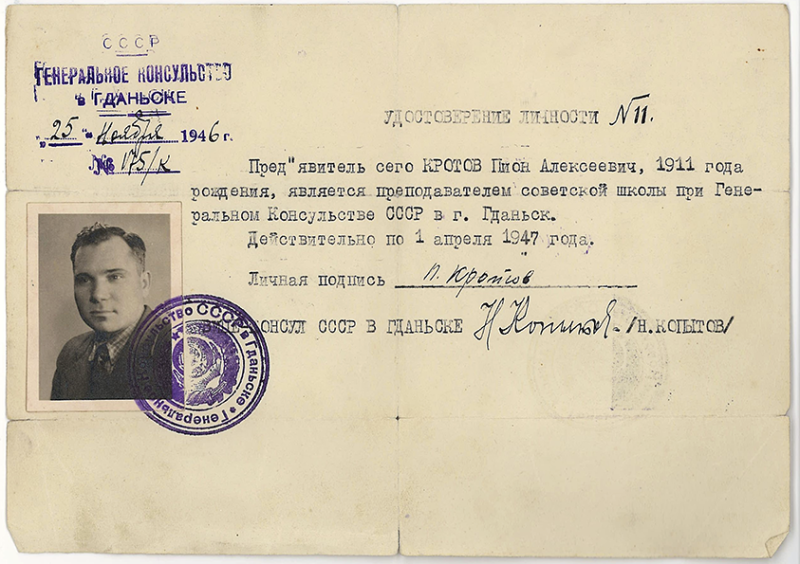 СССР
ГЕНЕРАЛЬНОЕ КОНСУЛЬСТВО
в ГДАНЬСКЕ
"25" Ноября 1946 г.
№ 175/к
УДОСТОВЕРЕНИЕ ЛИЧНОСТИ №11.
Пред"явитель сего КРОТОВ Пион Алексеевич, 1911 года
рождения, является преподавателем советской школы при Гене-
ральном Консульстве СССР в г. Гданьск.
Действительно по 1 апреля 1947 года.
Личная подпись П. Кротов
КОНСУЛ СССР В ГДАНЬСКЕ Н Копытов /Н.КОПЫТОВ/
Генеральное Консульство СССР в Гданьске